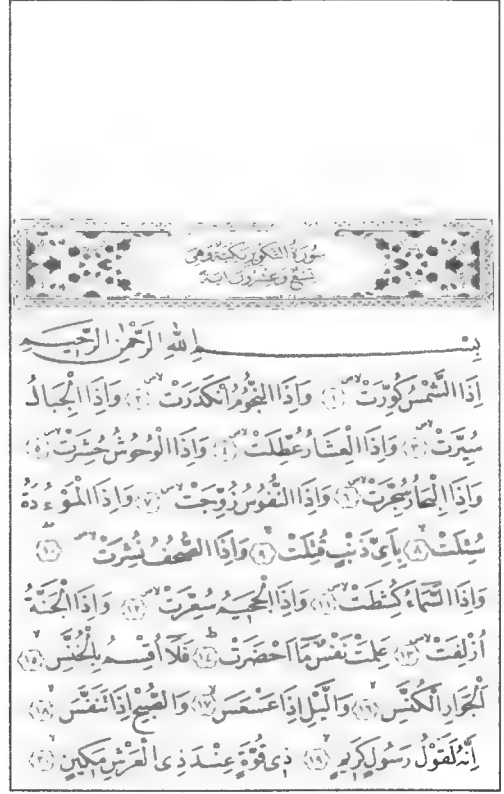 سُورَةُ التَّكْوِيرِ مَكِّيَّةٌ وَهِيَ
تِسْعٌ وَعِشْرُونَ اٰيَةً
بِسْمِ اللهِ الرَّحْمٰنِ الرَّحِيمِ
اِذَا الشَّمْسُ كُوِّرَتْ ﴿١﴾ وَاِذَا النُّجُومُ انْكَدَرَتْ ﴿٢﴾ وَاِذَا الْجِبَالُ
سُيِّرَتْ ﴿٣﴾ وَاِذَا الْعِشَارُ عُطِّلَتْ ﴿٤﴾ وَاِذَا الْوُحُوشُ حُشِرَتْ ﴿٥﴾
وَاِذَا الْبِحَارُ سُجِّرَتْ ﴿٦﴾ وَاِذَا النُّفُوسُ زُوِّجَتْ ﴿٧﴾ وَاِذَا الْمَوْءُدَةُ
سُئِلَتْ ﴿٨﴾ بِاَيِّ ذَنْبٍ قُتِلَتْ ﴿٩﴾ وَاِذَا الصُّحُفُ نُشِرَتْ ﴿١٠﴾
وَاِذَا السَّمَاءُ كُشِطَتْ ﴿١١﴾ وَاِذَا الْجَحِيمُ سُعِّرَتْ ﴿١٢﴾ وَاِذَا الْجَنَّةُ
اُزْلِفَتْ ﴿١٣﴾ عَلِمَتْ نَفْسٌ مَا اَحْضَرَتْ ﴿١٤﴾ فَلَا اُقْسِمُ بِالْخُنَّسِ ﴿١٥﴾
اَلْجَوَارِ الْكُنَّسِ ﴿١٦﴾ وَالَّيْلِ اِذَا عَسْعَسَ ﴿١٧﴾ وَالصُّبْحِ اِذَا تَنَفَّسَ ﴿١٨﴾
اِنَّهُ لَقَوْلُ رَسُولٍ كَرِيمٍ ﴿١٩﴾ ذِي قُوَّةٍ عِنْدَ ذِي الْعَرْشِ مَكِينٍ ﴿٢٠﴾